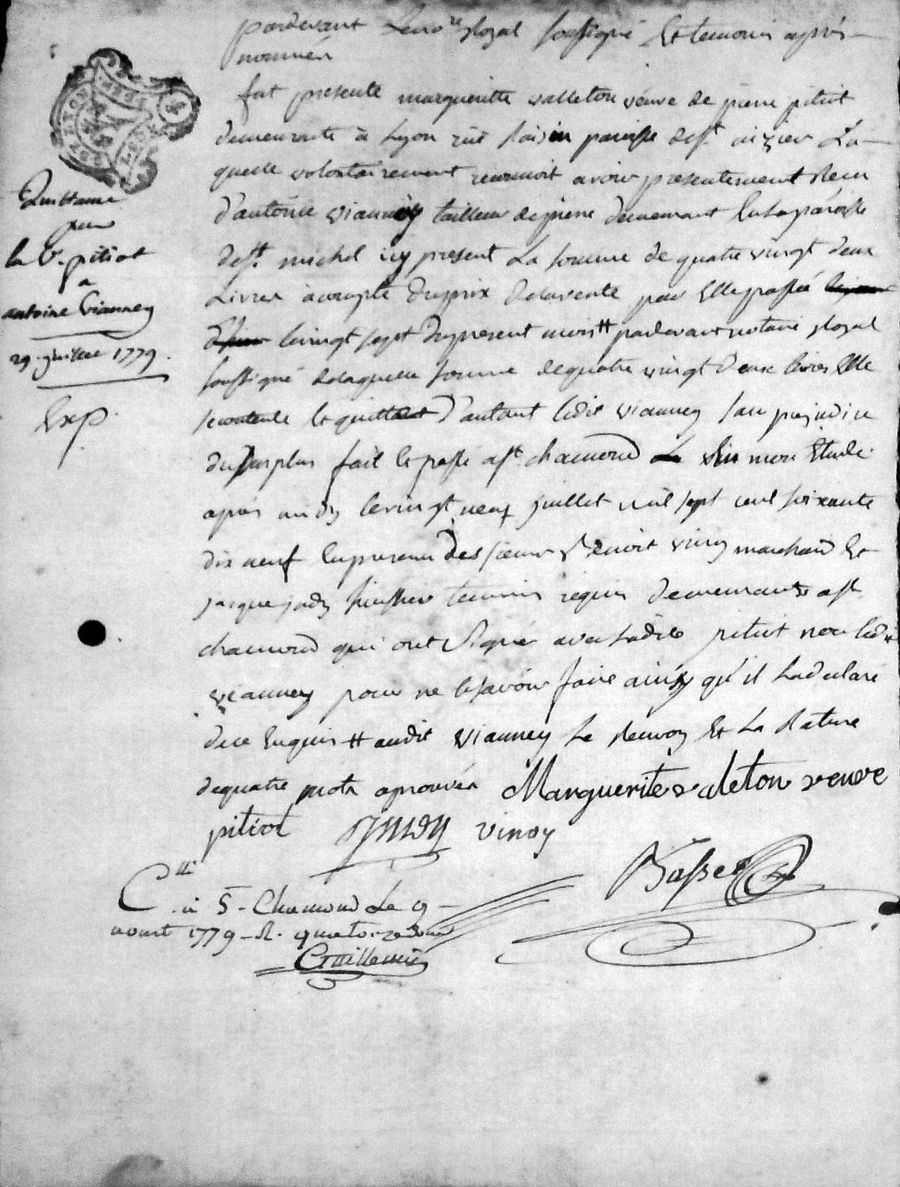 pardevant Le no.re Royal soussigné Et temoins après
nommés
fut presente margueritte valleton veuve de pierre pitiot
demeurante à Lyon rüe raisin paroisse de st nizier La
quelle volontairement reconnoit avoir presentement Receu
d'antoine vianney tailleur de pierre demeurant En la paroisse
de st. michel icy present La somme de quatre vingt deux
Livres acompte du prix de la vente par Elle passée
le vingt sept du present mois # pardevant notaire Royal
soussigné de laquelle somme de quatre vingt deux livres Elle
se contente Et quitte d'autant ledit vianney sans prejudice
du surplus fait Et passé a st chamond mon Etude
après midy le vingt neuf juillet mil sept cent soixante
dix neuf En presence des sieurs Benoit vinoy marchand Et
jacque temoins requis demeurants a st
chamond qui ont Signé avec ladite pitiot non ledit
vianney pour ne le savoir faire ainsy qu'il La declaré
de ce Enquis # audit vianney Le Renvoy Et La Rature
de quatre mots aprouvés Marguerite valeton veuve
pitiot vinoy
Quittance
pour
la Ve. pitiot
a
antoine Vianney
29. juillet 1779.
Exp.
C.llé à S. Chamond Le 9
aoust 1779 R. quatorze sous